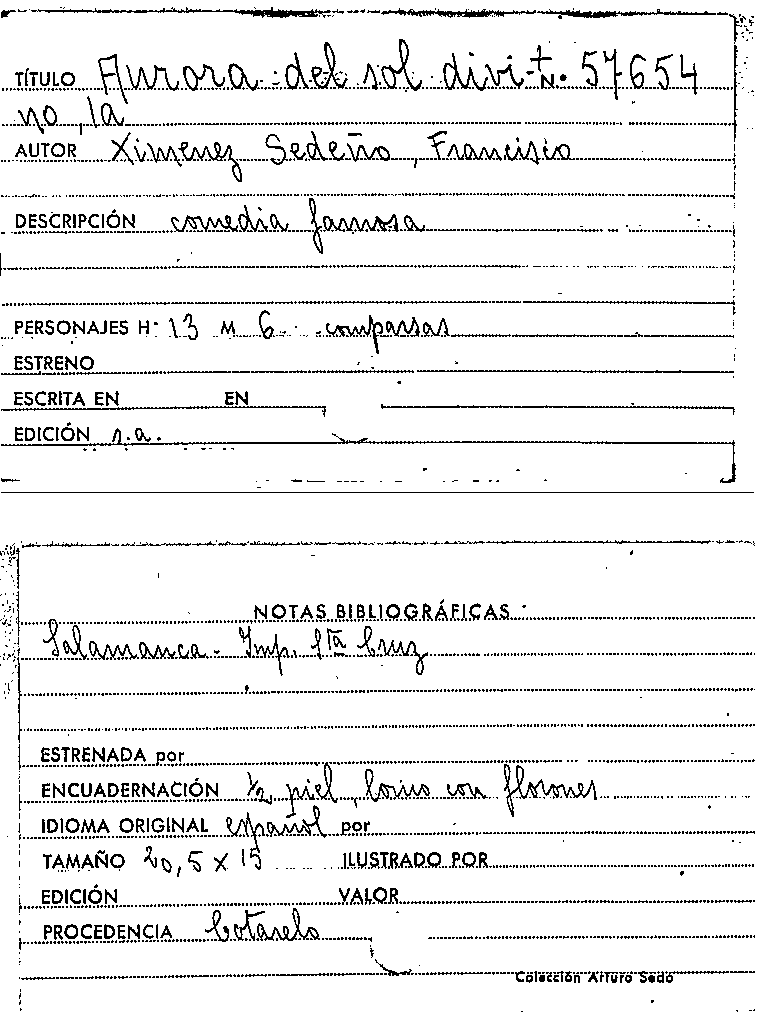 TÍTULO Aurora del sol divi- N. 57654
no, la
AUTOR Ximenez Sedeño, Francisco
DESCRIPCIÓN comedia famosa
PERSONAJES H· 13 M 6 comparsas
ESTRENO
ESCRITA EN EN
EDICIÓN s.a.
NOTAS BIBLIOGRÁFICAS
Salamanca - Imp. Sta Cruz
ESTRENADA por
ENCUADERNACIÓN ½ piel, lomo con florones
IDIOMA ORIGINAL español por
TAMAÑO 20,5 x 15 ILUSTRADO POR
EDICIÓN VALOR
PROCEDENCIA Cotarelo
Colección Arturo Sedó